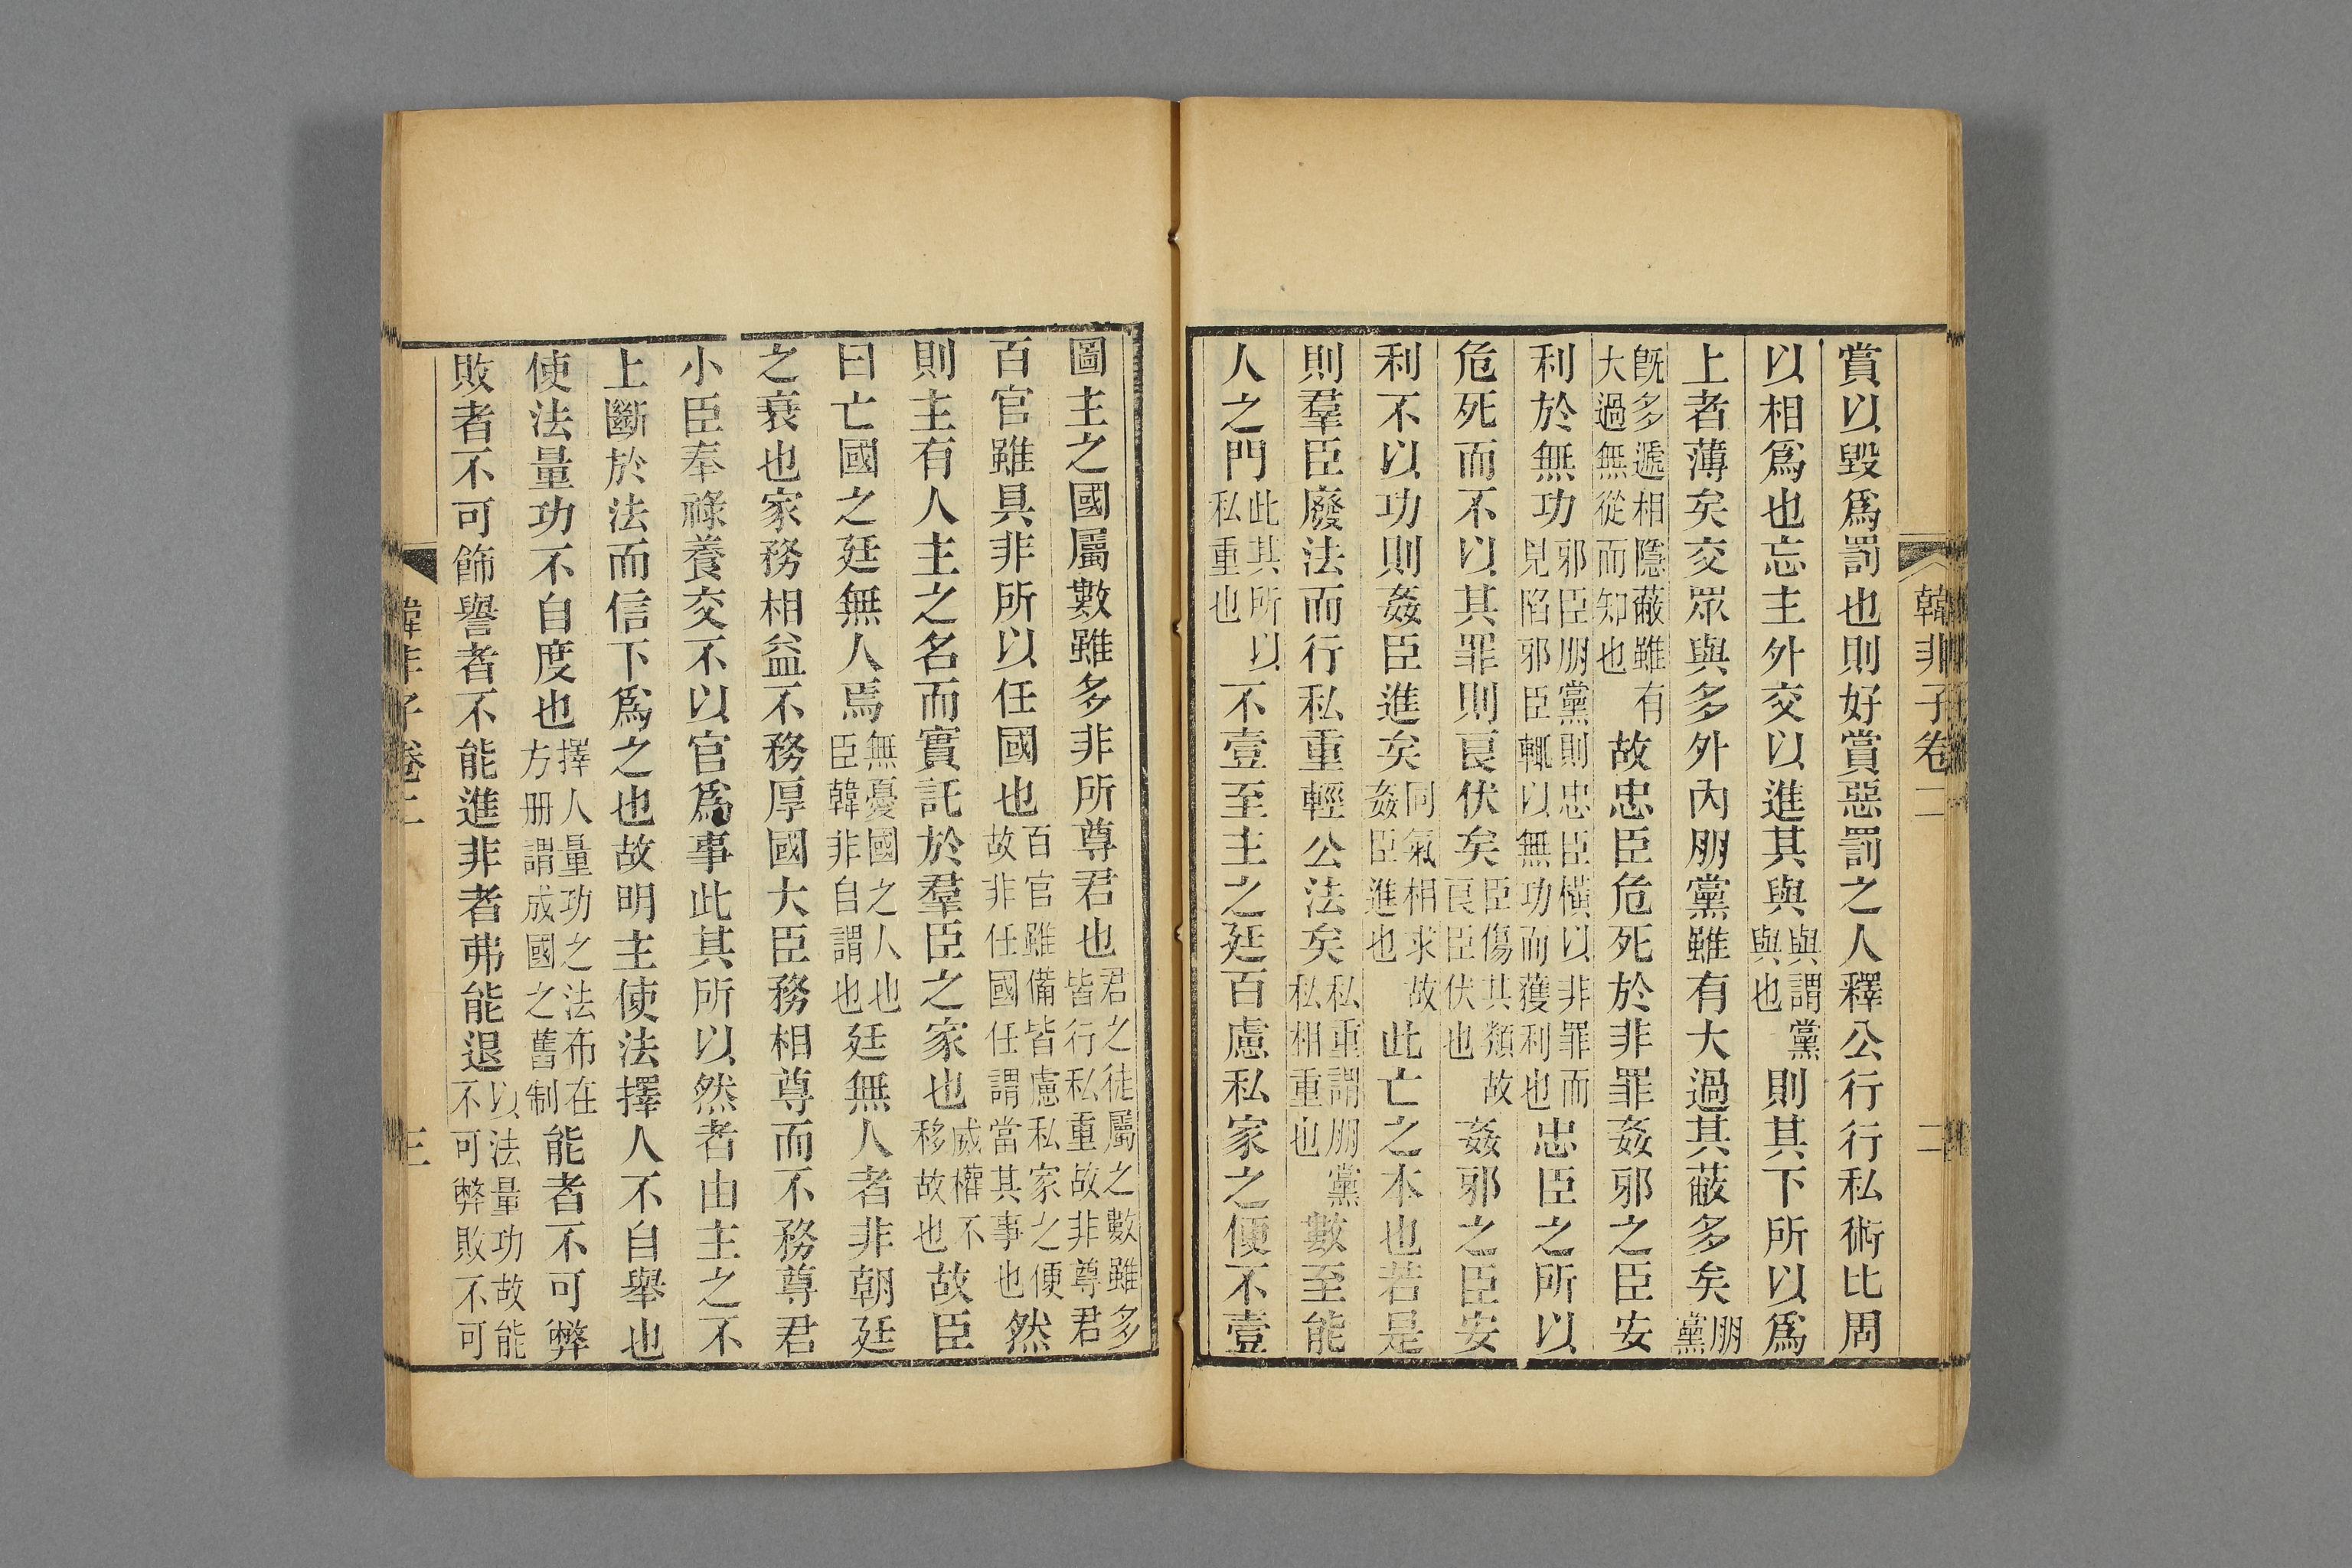 韓非子卷二 二
賞以毀爲罰也則好賞惡罰之人釋公行行私術比周
以相爲也忘主外交以進其與與謂黨與也則其下所以爲
上者薄矣交眾與多外內朋黨雖有大過其蔽多矣朋黨
旣多遞相隱蔽雖有大過無從而知也故忠臣危死於非罪姦邪之臣安
利於無功邪臣朋黨則忠臣橫以非罪而見陷邪臣輒以無功而獲利也忠臣之所以
危死而不以其罪則良伏矣臣傷其類故良臣伏也姦邪之臣安
利不以功則姦臣進矣同氣相求故姦臣進也此亡之本也若是
則羣臣廢法而行私重輕公法矣私重謂朋黨私相重也數至能
人之門此其所以私重也不壹至主之廷百慮私家之便不壹
圖主之國屬數雖多非所尊君也君之徒屬之數雖多皆行私重故非尊君
百官雖具非所以任國也百官雖備皆慮私家之便故非任國任謂當其事也然
則主有人主之名而實託於羣臣之家也威權不移故也故臣
曰亡國之廷無人焉無憂國之人也臣韓非自謂也廷無人者非朝廷
之衰也家務相益不務厚國大臣務相尊而不務尊君
小臣奉祿養交不以官爲事此其所以然者由主之不
上斷於法而信下爲之也故明主使法擇人不自舉也
使法量功不自度也擇人量功之法布在方冊謂成國之舊制能者不可弊
敗者不可飾譽者不能進非者弗能退以法量功故能不可弊敗不可
韓非子卷二 三